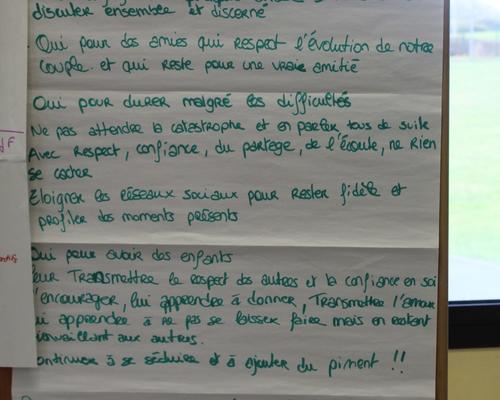 discuter ensemble et discerné
Oui pour des amies qui respect l'évolution de notre
couple. et qui reste pour une vraie amitié
Oui pour durer malgré les difficultés
Ne pas attendre la catastrophe et en parler tous de suite
Avec respect, confiance, du partage, de l'écoute, ne rien
se cacher
Eloigner les réseaux sociaux pour rester fidèle et
profiler des moments présents
Oui pour avoir des enfants
leur Transmettre le respect des autres et la confiance en soi
l'encourager, lui apprendre à donner, Transmettre l'amour
lui apprendre à ne pas se laisser faire mais en restant
bienveillant aux autres.
continuer à se séduire et à ajouter du piment !!